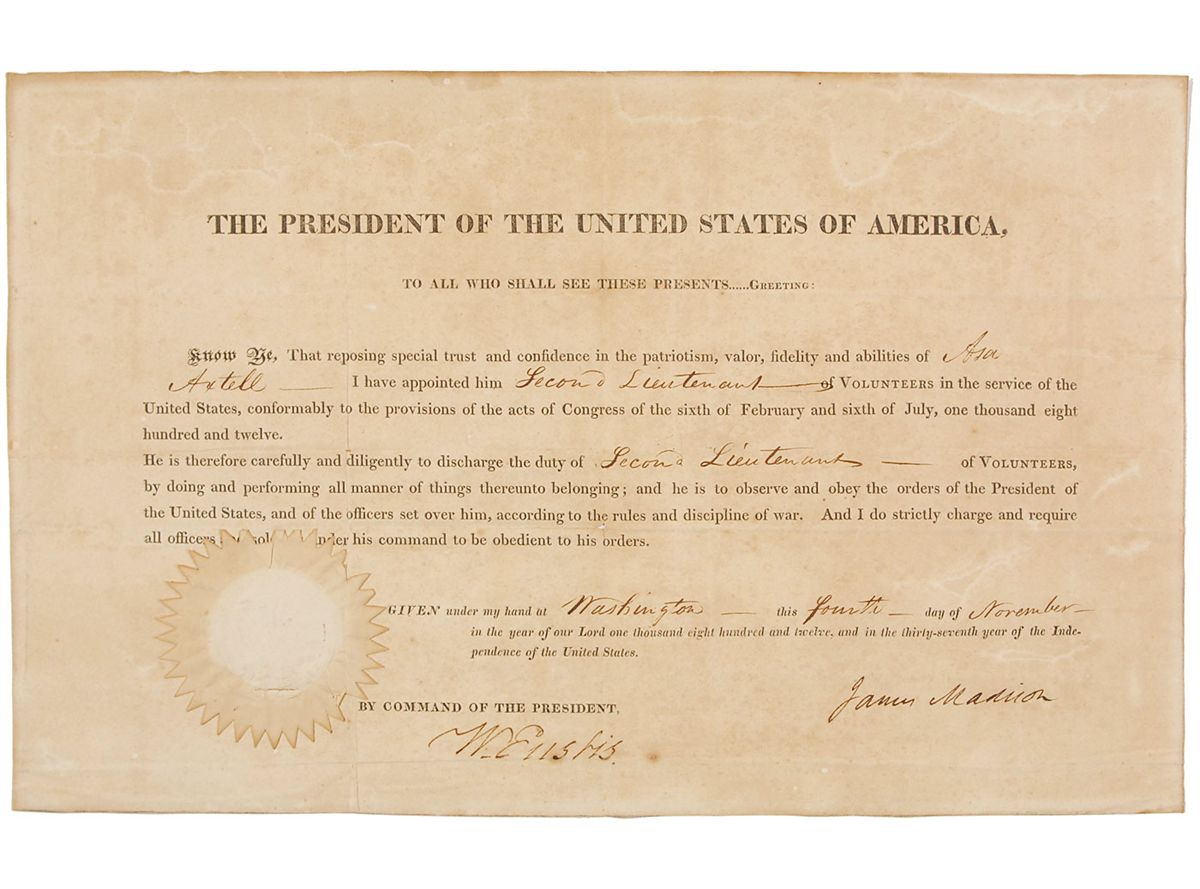 THE PRESIDENT OF THE UNITED STATES OF AMERICA,
TO ALL WHO SHALL SEE THESE PRESENTS......GREETING:
Know Ye, That reposing special trust and confidence in the patriotism, valor, fidelity and abilities of Asa
Axtell — I have appointed him Second Lieutenant — of VOLUNTEERS in the service of the
United States, conformably to the provisions of the acts of Congress of the sixth of February and sixth of July, one thousand eight
hundred and twelve.
He is therefore carefully and diligently to discharge the duty of Second Lieutenant — of VOLUNTEERS,
by doing and performing all manner of things thereunto belonging; and he is to observe and obey the orders of the President of
the United States, and of the officers set over him, according to the rules and discipline of war. And I do strictly charge and require
all officers under his command to be obedient to his orders.
GIVEN under my hand at Washington — this fourth — day of November —
in the year of our Lord one thousand eight hundred and twelve, and in the thirty-seventh year of the Inde-
pendence of the United States.
James Madison
BY COMMAND OF THE PRESIDENT,
W. Eustis.